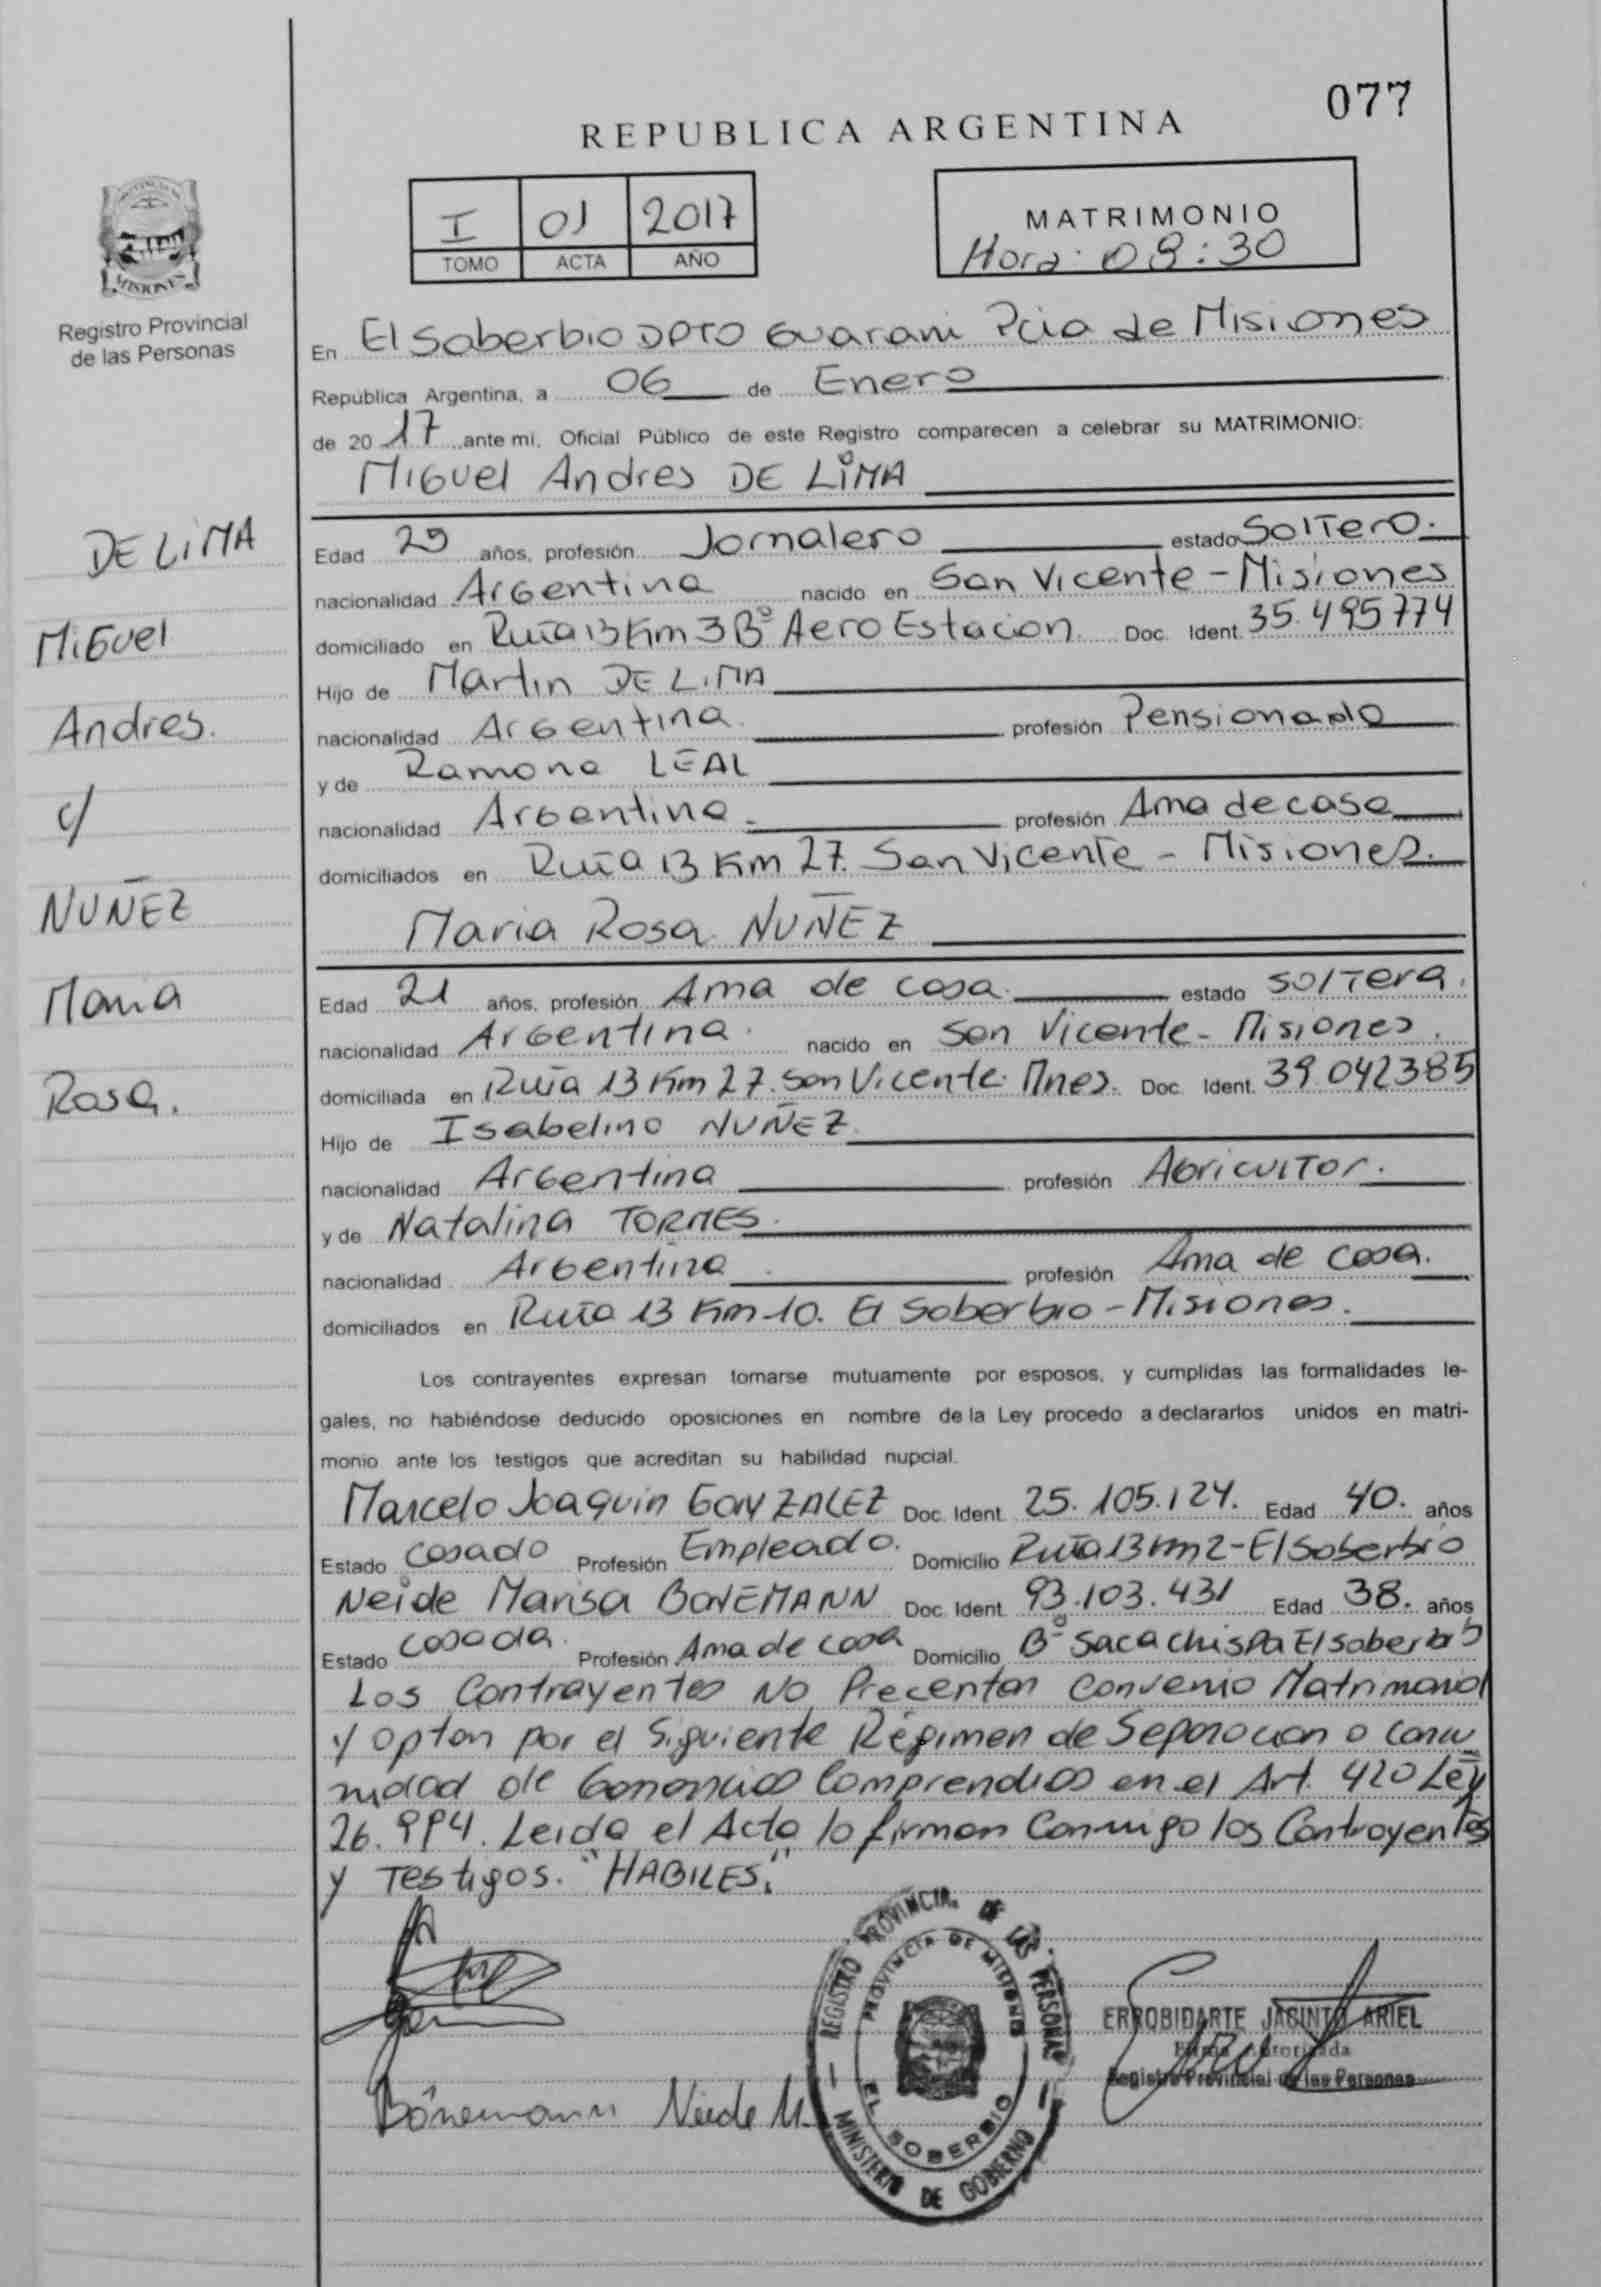 077
REPUBLICA ARGENTINA
I 01 2017
TOMO ACTA AÑO
MATRIMONIO
Hora: 08:30
PROVINCIA DE
MISIONES
Registro Provincial
de las Personas
En El Soberbio DPTO Guarani Pcia de Misiones
República Argentina, a 06 de Enero
de 20 17 ante mi, Oficial Público de este Registro comparecen a celebrar su MATRIMONIO:
Miguel Andres DE LIMA
DE LIMA
Miguel
Andres.
c/
NUÑEZ
Maria
Rosa.
Edad 29 años, profesión Jornalero estado Soltero.
nacionalidad Argentina nacido en San Vicente - Misiones
domiciliado en Ruta 13 Km 3 Bº Aero Estacion. Doc. Ident. 35.495774
Hijo de Martin DE LIMA
nacionalidad Argentina. profesión Pensionado
y de Ramona LEAL
nacionalidad Argentina. profesión Ama de casa
domiciliados en Ruta 13 Km 27. San Vicente - Misiones.
Maria Rosa NUÑEZ
Edad 21 años, profesión Ama de casa. estado soltera.
nacionalidad Argentina. nacido en San Vicente - Misiones.
domiciliada en Ruta 13 Km 27. San Vicente. Mnes. Doc. Ident. 39.042385
Hijo de Isabelino NUÑEZ.
nacionalidad Argentina profesión Agricultor.
y de Natalina TORMES.
nacionalidad Argentina profesión Ama de casa.
domiciliados en Ruta 13 Km 10. El Soberbio - Misiones.
Los contrayentes expresan tomarse mutuamente por esposos, y cumplidas las formalidades le-
gales, no habiéndose deducido oposiciones en nombre de la Ley procedo a declararlos unidos en matri-
monio ante los testigos que acreditan su habilidad nupcial.
Marcelo Joaquin GONZALEZ Doc. Ident. 25.105.124. Edad 40. años
Estado Casado Profesión Empleado. Domicilio Ruta 13 Km 2 - El Soberbio
Neide Marisa BONEMANN Doc. Ident. 93.103.431 Edad 38. años
Estado Casada. Profesión Ama de casa Domicilio Bº Sacachispa El Soberbio
Los Contrayentes No Precentan Convenio Matrimonial
y optan por el Siguiente Régimen de Separacion o Comu
nidad de Ganancias Comprendidos en el Art. 420 Ley
26.994. Leida el Acta lo firman Conmigo los Contrayentes
y Testigos. "HABILES."
REGISTRO PROVINCIAL DE LAS PERSONAS
PROVINCIA DE MISIONES
EL SOBERBIO
MINISTERIO DE GOBIERNO
ERROBIDARTE JACINTO ARIEL
Firma Autorizada
Registro Provincial de las Personas
Bönemann Neide M.